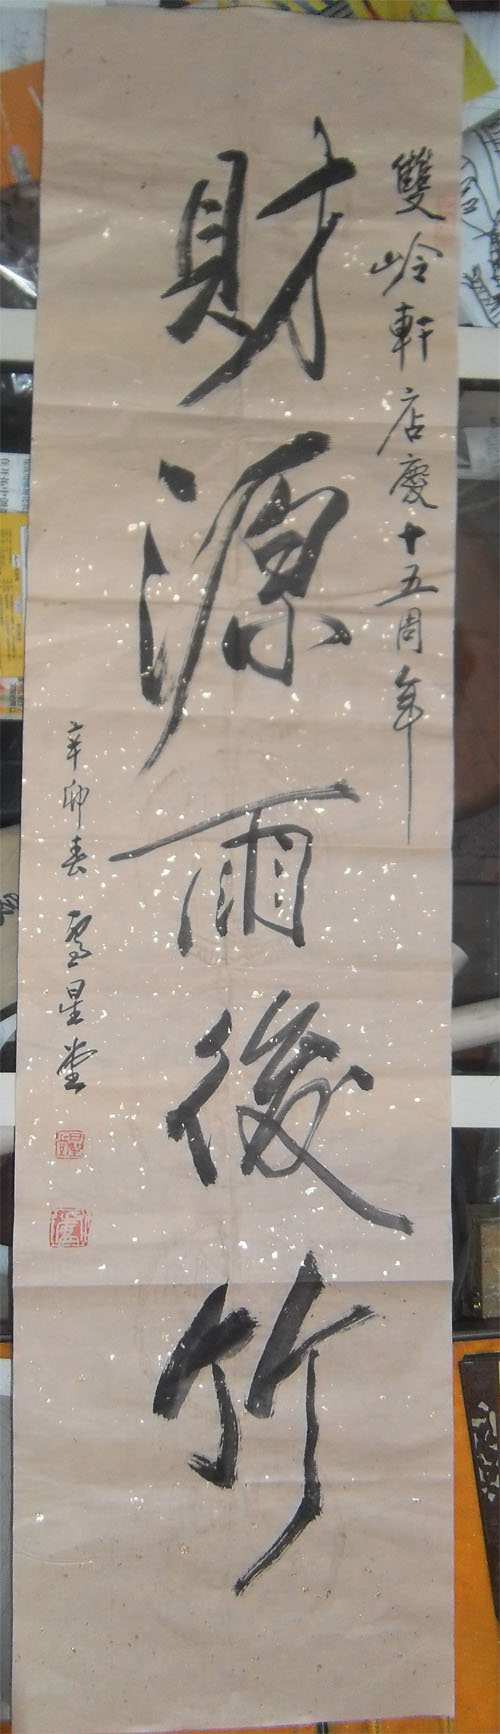 雙岭軒店慶十五周年
財源雨後竹
辛卯春 盧星堂